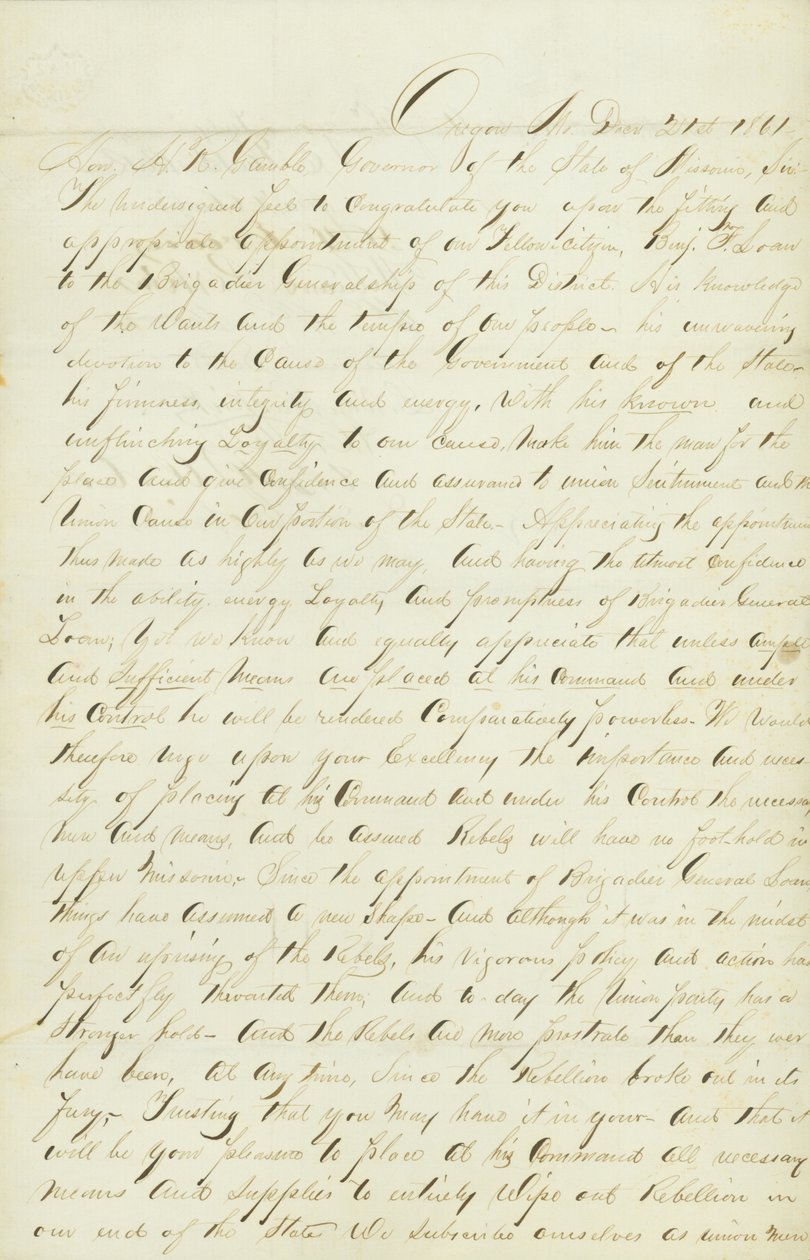 Oregon Mo. Decr 21st 1861
Hon. H. R. Gamble Governor of the State of Missouri, Sir:-
The undersigned feel to congratulate you upon the fitting and
appropriate appointment of our Fellow-citizen, Benj. F. Loan
to the Brigadier Generalship of this District. His knowledge
of the wants and the temper of our people - his unwavering
devotion to the Cause of the Government and of the State -
his firmness, integrity and energy, with his known and
unflinching Loyalty to our cause, make him the man for the
place and give Confidence and assurance to union Sentiment and the
Union Cause in our portion of the State. - Appreciating the appointment
thus made as highly as we may, and having the utmost Confidence
in the ability, energy Loyalty and promptness of Brigadier General
Loan; yet we know and equally appreciate that unless ample
and sufficient means are placed at his Command and under
his Control he will be rendered Comparatively powerless. We would
therefore urge upon your Excellency the importance and neces-
sity of placing at his Command and under his Control the necessary
men and means, and be assured Rebels will have no foot-hold in
upper Missouri,- Since the appointment of Brigadier General Loan
things have assumed a new shape - and although it was in the midst
of an uprising of the Rebels, his vigorous policy and action has
perfectly thwarted them; and to-day the Union party has a
stronger hold - and the Rebels are more prostrate than they ever
have been, at any time, Since the Rebellion broke out in its
fury,- Trusting that you may have it in your - and that it
will be your pleasure to place at his Command all necessary
means and supplies to entirely Wipe out Rebellion in
our end of the State We subscribe ourselves as union men